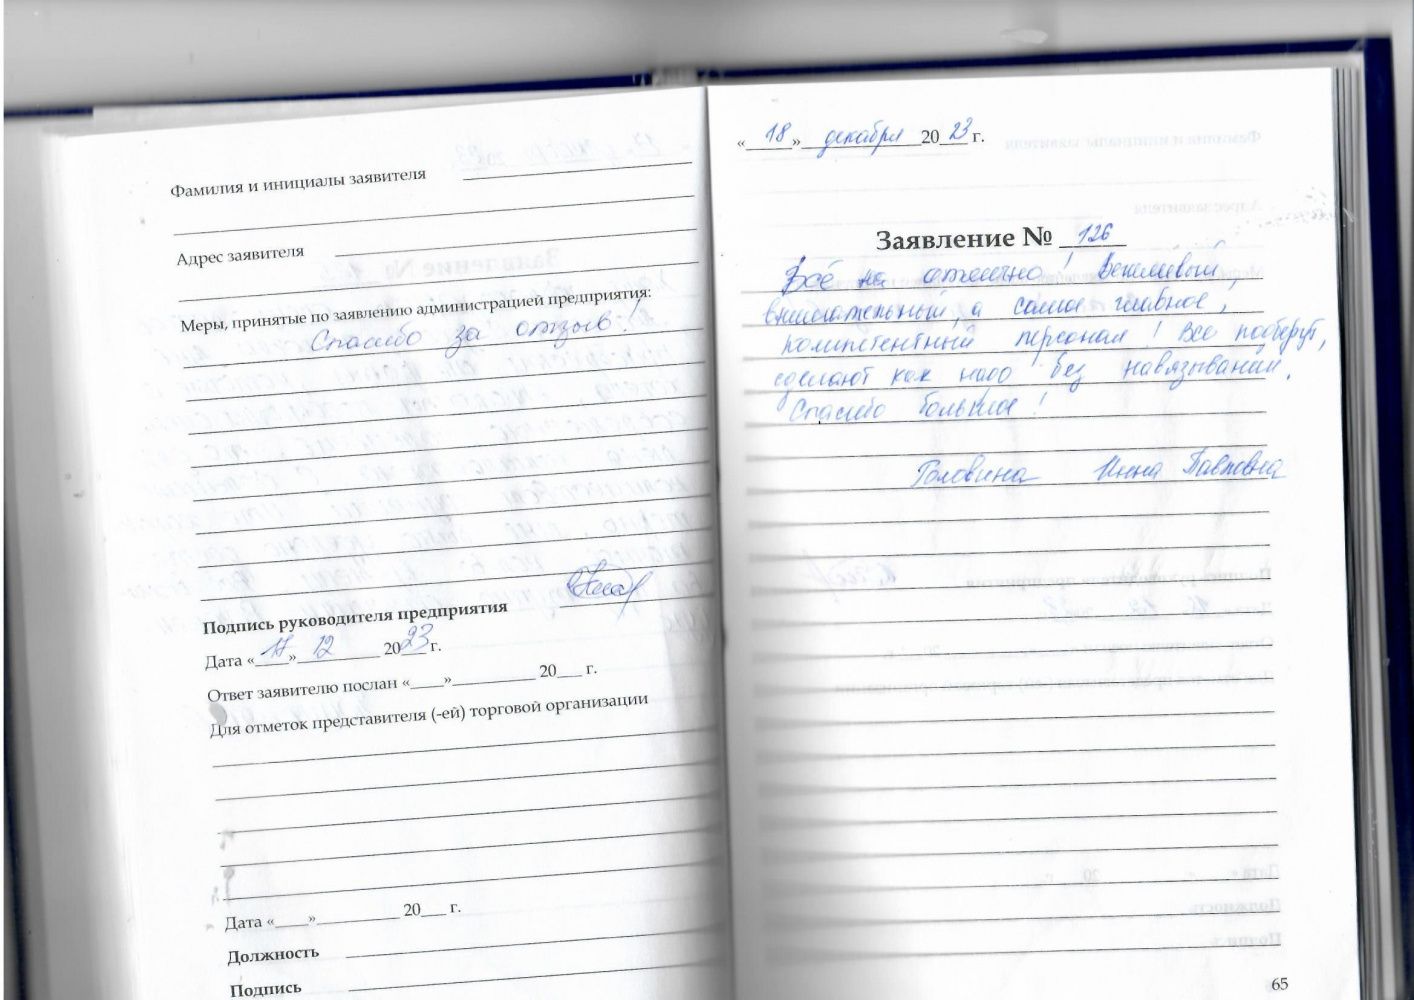 Фамилия и инициалы заявителя
Адрес заявителя
Меры, принятые по заявлению администрацией предприятия:
Спасибо за отзыв!
Подпись руководителя предприятия
Дата «17» 12 2023 г.
Ответ заявителю послан «____»__________ 20___ г.
Для отметок представителя (-ей) торговой организации
Дата «____»__________ 20___ г.
Должность
Подпись
«18» декабря 2023 г.
Заявление № 126
Всё на отлично! Вежливый,
внимательный, а самое главное,
компетентный персонал! Все подберут,
сделают как надо без навязывания.
Спасибо большое!
Головина Инна Павловна
65